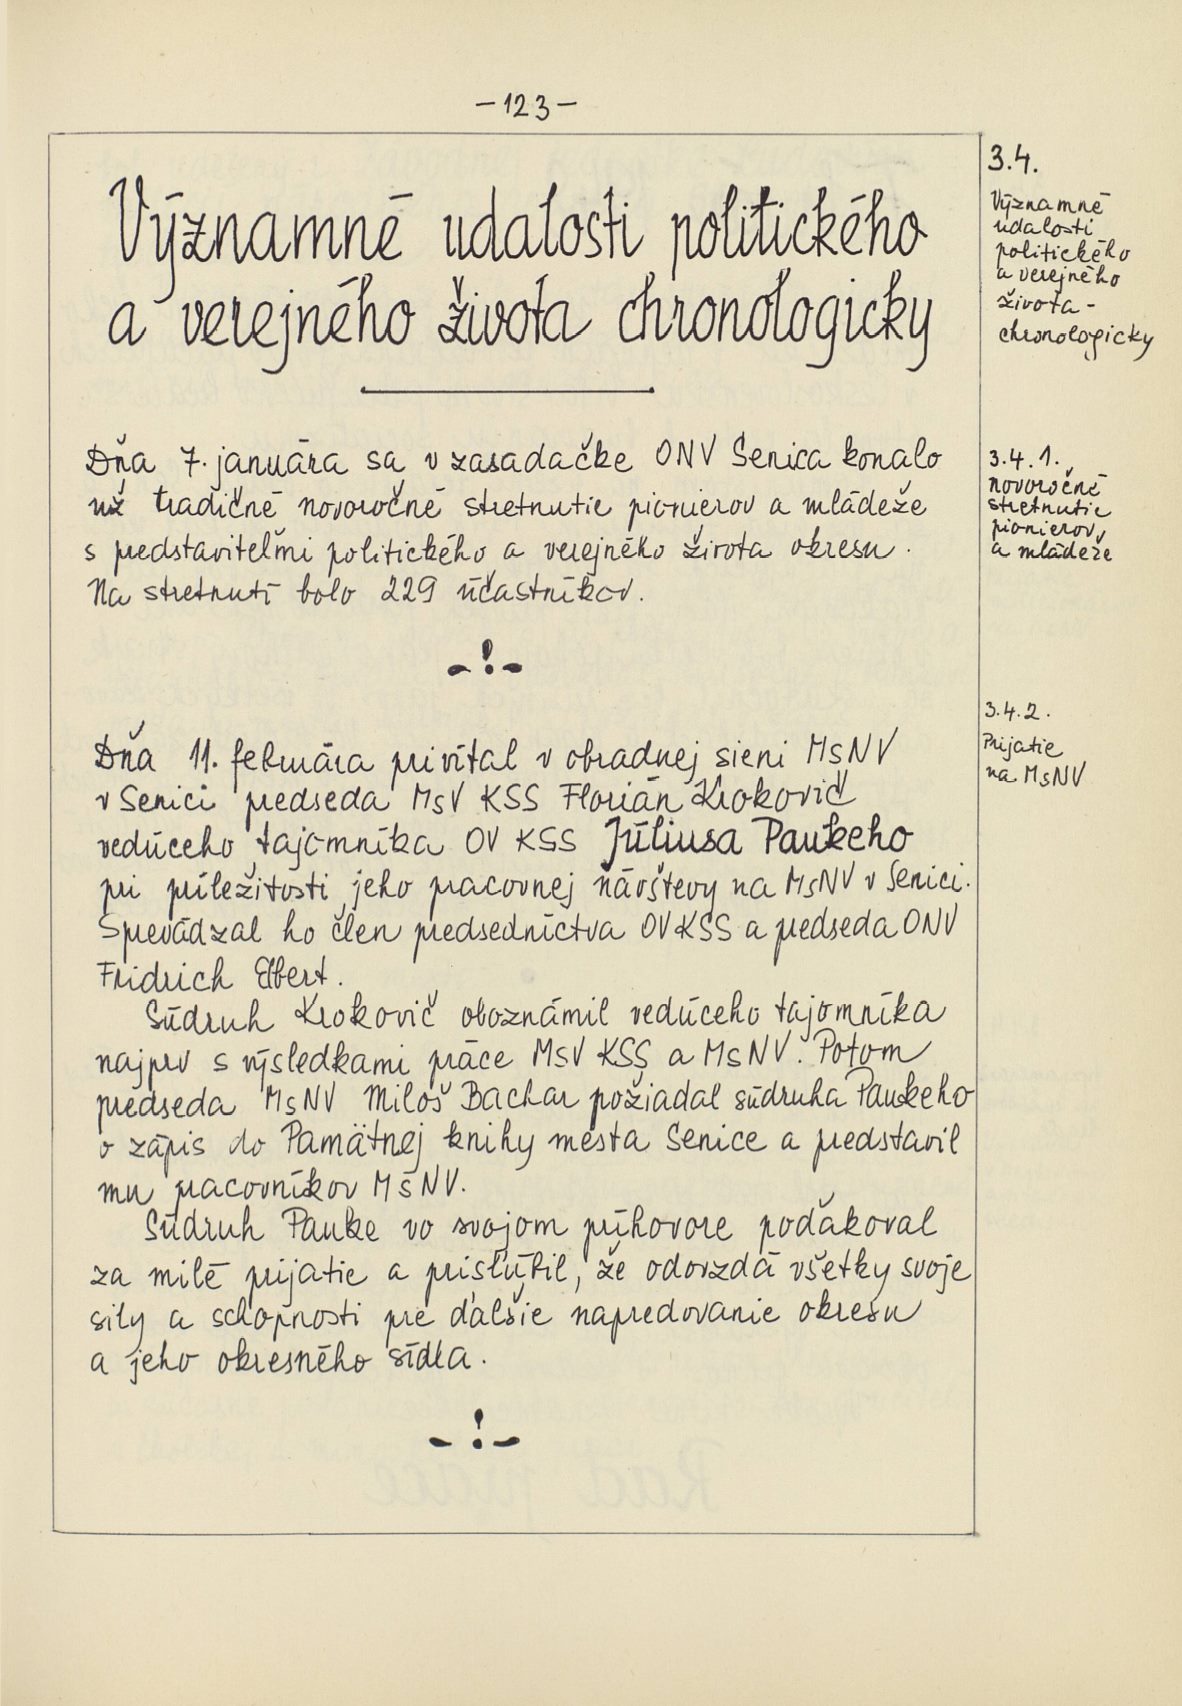 -123-
Významné udalosti politického
a verejného života chronologicky
3.4.
Významné
udalosti
politického
a verejného
života -
chronologicky
Dňa 7. januára sa v zasadačke ONV Senica konalo
už tradičné novoročné stretnutie pionierov a mládeže
s predstaviteľmi politického a verejného života okresu.
Na stretnutí bolo 229 účastníkov.
3.4.1.
novoročné
stretnutie
pionierov
a mládeže
-!-
Dňa 11. februára privítal v obradnej sieni MsNV
v Senici predseda MsV KSS Florián Krokovič
vedúceho tajomníka OV KSS Júliusa Paukeho
pri príležitosti jeho pracovnej návštevy na MsNV v Senici.
Sprevádzal ho člen predsedníctva OV KSS a predseda ONV
Fridrich Elbert.
Súdruh Krokovič oboznámil vedúceho tajomníka
najprv s výsledkami práce MsV KSS a MsNV. Potom
predseda MsNV Miloš Bachar požiadal súdruha Paukeho
o zápis do Pamätnej knihy mesta Senice a predstavil
mu pracovníkov MsNV.
Súdruh Pauke vo svojom príhovore poďakoval
za milé prijatie a prisľúbil, že odovzdá všetky svoje
sily a schopnosti pre ďalšie napredovanie okresu
a jeho okresného sídla.
3.4.2.
Prijatie
na MsNV
-!-